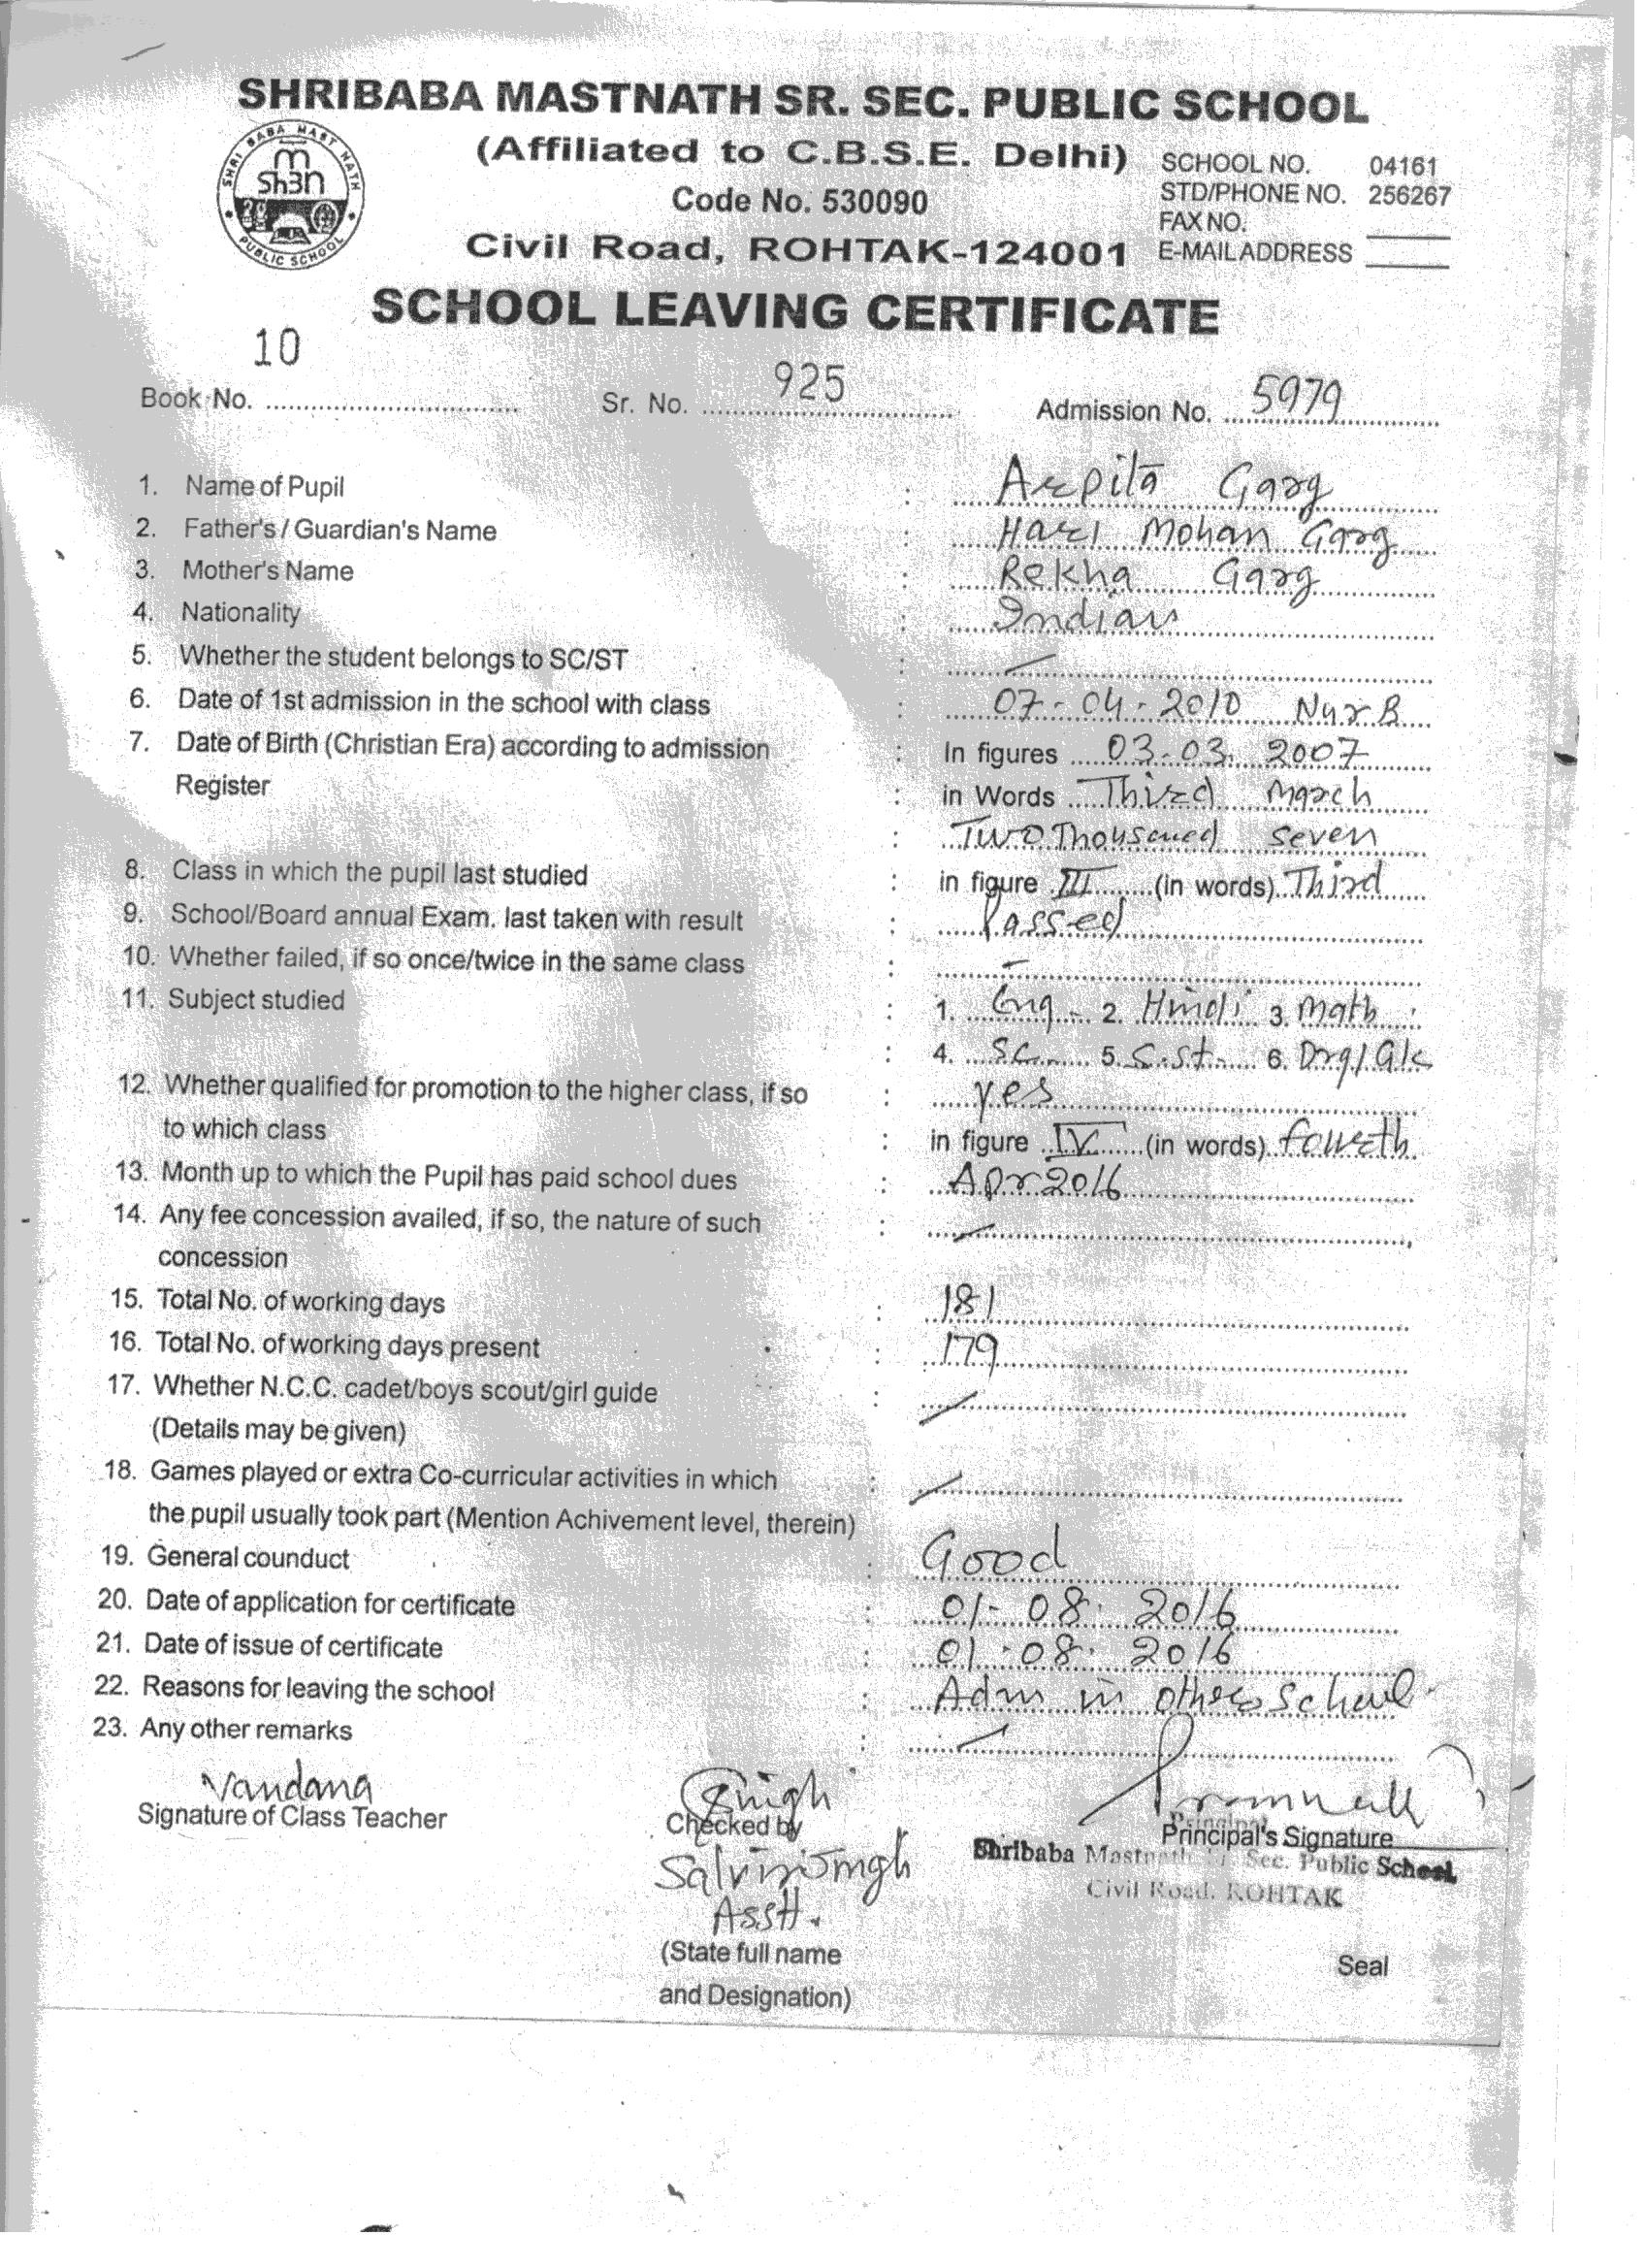 SHRIBABA MASTNATH SR. SEC. PUBLIC SCHOOL
SHRI BABA MAST NATH
PUBLIC SCHOOL
(Affiliated to C.B.S.E. Delhi)
SCHOOL NO. 04161
Code No. 530090
STD/PHONE NO. 256267
FAX NO.
Civil Road, ROHTAK-124001
E-MAIL ADDRESS
SCHOOL LEAVING CERTIFICATE
Book No. 10 Sr. No. 925 Admission No. 5979
1. Name of Pupil : Arpita Garg
2. Father's / Guardian's Name : Hari Mohan Garg
3. Mother's Name : Rekha Garg
4. Nationality : Indian
5. Whether the student belongs to SC/ST : —
6. Date of 1st admission in the school with class : 07-04-2010 Nur B
7. Date of Birth (Christian Era) according to admission : In figures 03-03. 2007
Register : in Words Third March
: Two Thousand Seven
8. Class in which the pupil last studied : in figure III (in words) Third
9. School/Board annual Exam. last taken with result : Passed
10. Whether failed, if so once/twice in the same class : —
11. Subject studied : 1. Eng - 2. Hindi 3. Math
: 4. Sc. 5. S.St. 6. Drg/G/c
12. Whether qualified for promotion to the higher class, if so : yes
to which class : in figure IV (in words) fourth
13. Month up to which the Pupil has paid school dues : Apr 2016
14. Any fee concession availed, if so, the nature of such : —
concession
15. Total No. of working days : 181
16. Total No. of working days present : 179
17. Whether N.C.C. cadet/boys scout/girl guide : —
(Details may be given)
18. Games played or extra Co-curricular activities in which : —
the pupil usually took part (Mention Achivement level, therein)
19. General counduct : Good
20. Date of application for certificate : 01-08. 2016
21. Date of issue of certificate : 01-08. 2016
22. Reasons for leaving the school : Adm in other School.
23. Any other remarks : —
Vandana
Signature of Class Teacher
Singh
Checked by
Principal
Principal's Signature
Shribaba Mastnath Sr. Sec. Public School
Civil Road, ROHTAK
Asstt.
(State full name
and Designation)
Seal